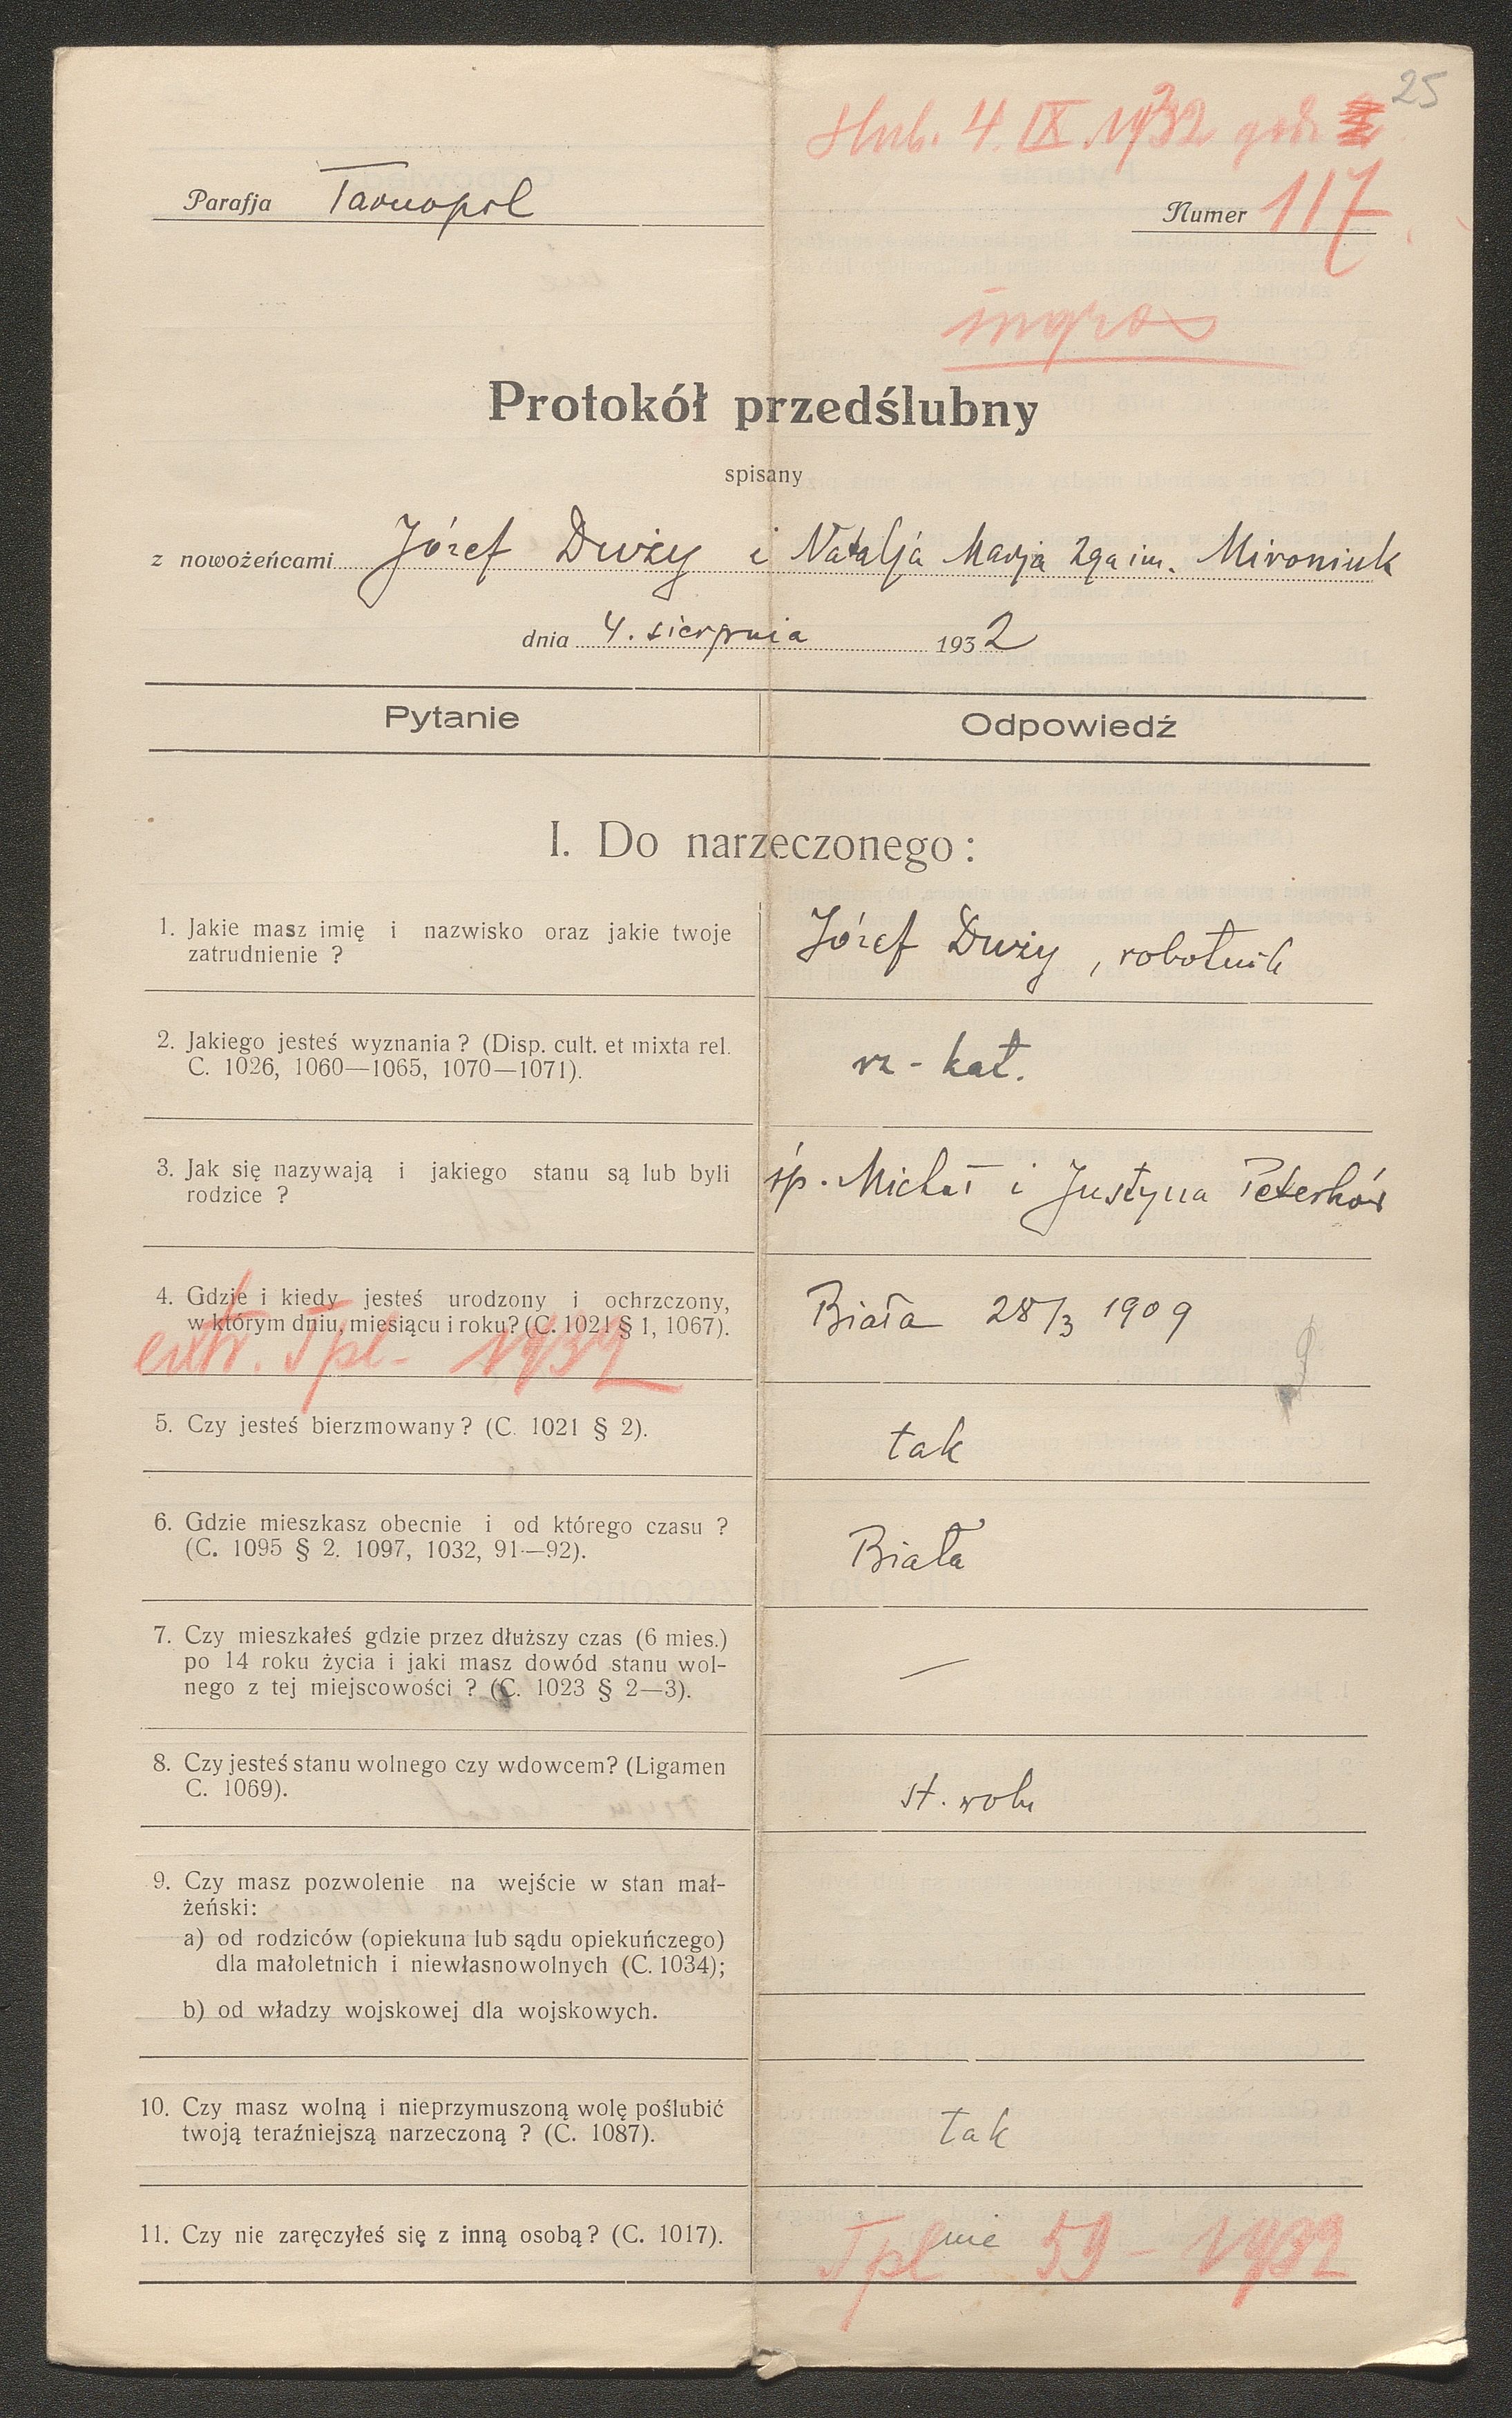 25
ślub. 4. IX. 1932 godz
Parafja Tarnopol
Numer 117
ingros
Protokół przedślubny
spisany
z nowożeńcami Józef Duży i Natalja Marja 2ga im. Mironiuk
dnia 4. sierpnia 1932
Pytanie Odpowiedź
I. Do narzeczonego:
1. Jakie masz imię i nazwisko oraz jakie twoje
zatrudnienie ?
Józef Duży, robotnik
2. Jakiego jesteś wyznania ? (Disp. cult. et mixta rel.
C. 1026, 1060—1065, 1070—1071).
rz - kat.
3. Jak się nazywają i jakiego stanu są lub byli
rodzice ?
śp. Michał i Justyna Peterków
4. Gdzie i kiedy jesteś urodzony i ochrzczony,
w którym dniu, miesiącu i roku? (C. 1021 § 1, 1067).
extr. Tpl - 1932
Biała 28/3 1909
5. Czy jesteś bierzmowany ? (C. 1021 § 2).
tak
6. Gdzie mieszkasz obecnie i od którego czasu ?
(C. 1095 § 2. 1097, 1032, 91—92).
Biała
7. Czy mieszkałeś gdzie przez dłuższy czas (6 mies.)
po 14 roku życia i jaki masz dowód stanu wol-
nego z tej miejscowości ? (C. 1023 § 2—3).
—
8. Czy jesteś stanu wolnego czy wdowcem? (Ligamen
C. 1069).
st. woln
9. Czy masz pozwolenie na wejście w stan mał-
żeński:
a) od rodziców (opiekuna lub sądu opiekuńczego)
dla małoletnich i niewłasnowolnych (C. 1034);
b) od władzy wojskowej dla wojskowych.
10. Czy masz wolną i nieprzymuszoną wolę poślubić
twoją teraźniejszą narzeczoną ? (C. 1087).
tak
11. Czy nie zaręczyłeś się z inną osobą ? (C. 1017).
nie
Tpl 59 - 1932